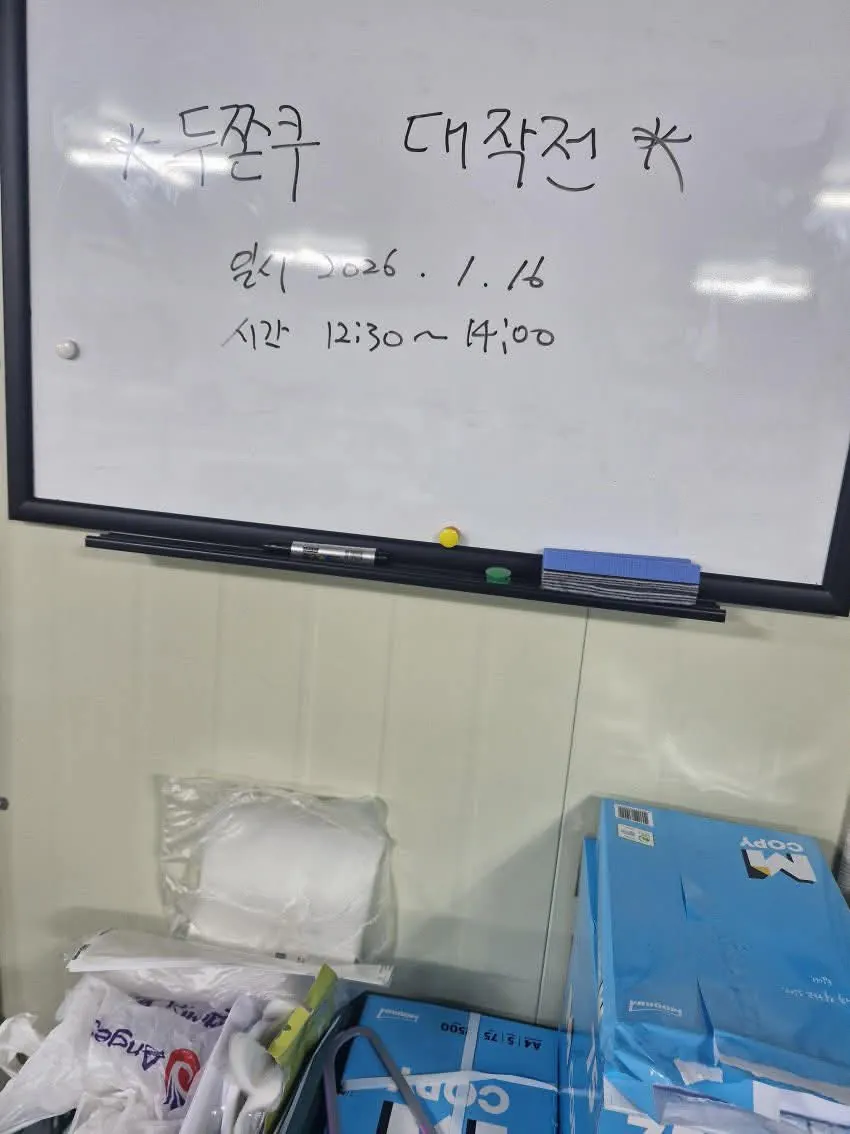 * 두쫀쿠 대작전 *
일시 2026. 1. 16
시간 12:30 ~ 14:00
M
COPY
Ange
A4 | S | 75 | 500
COPY